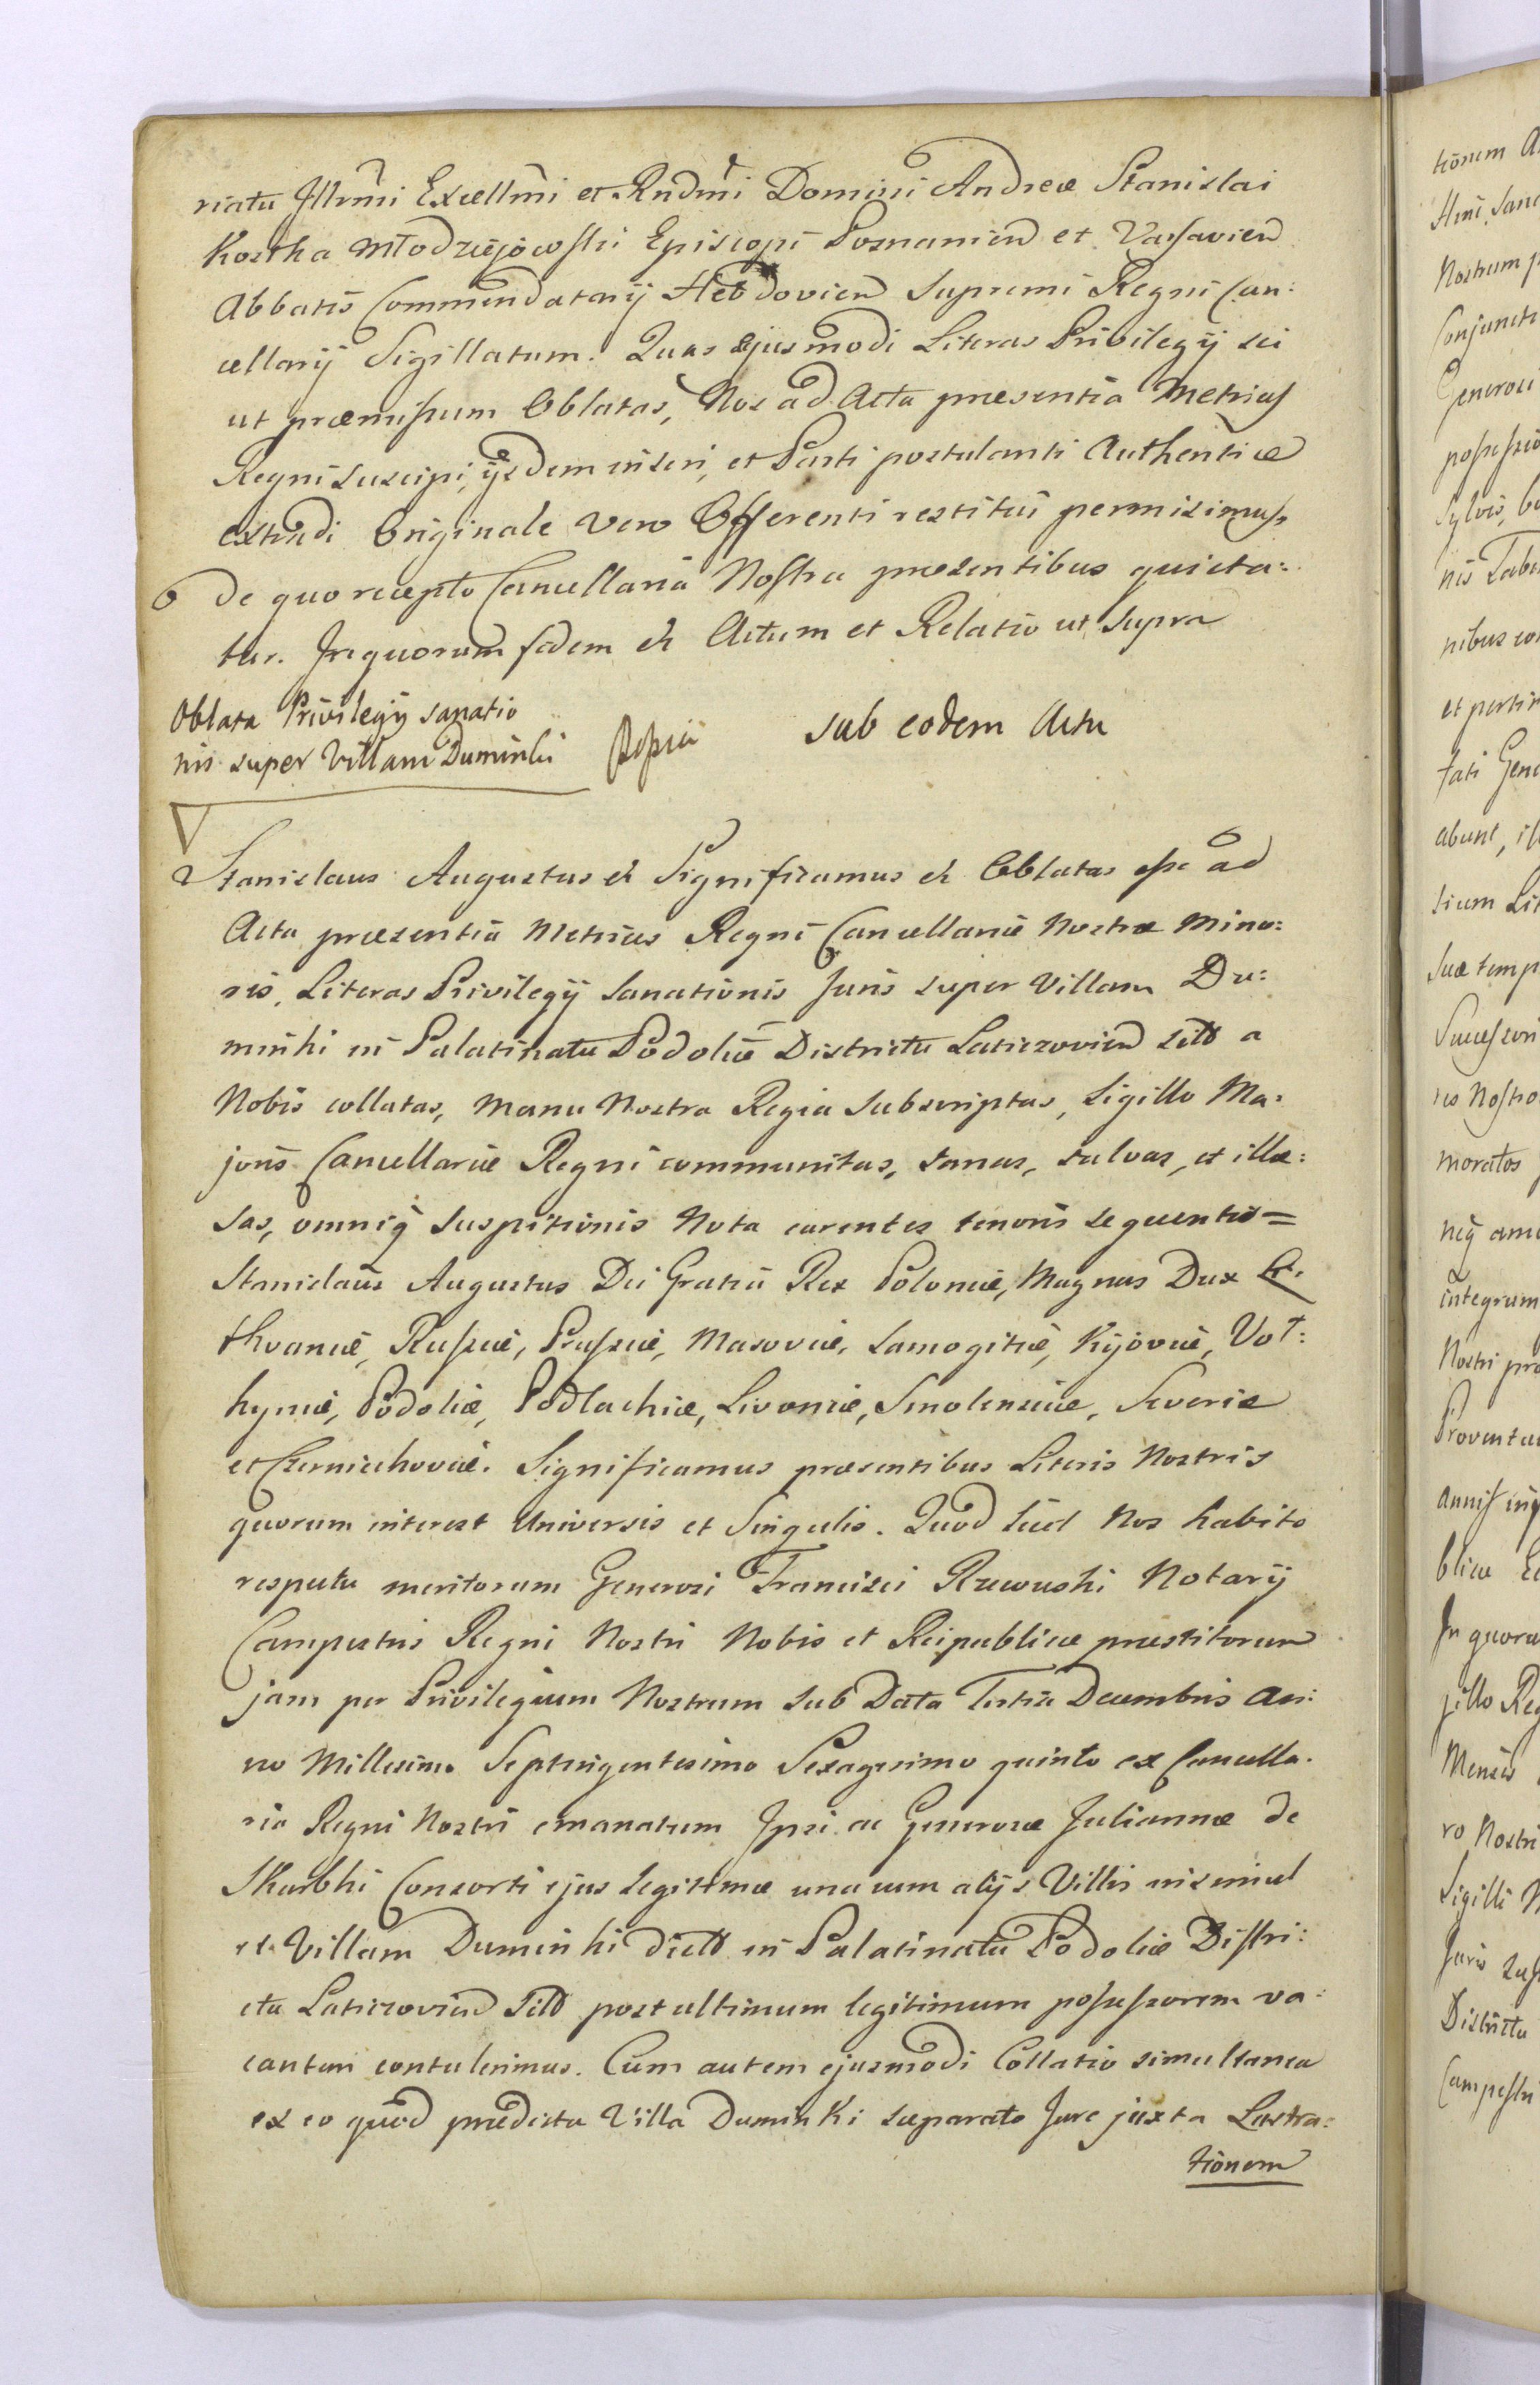 riatu Jllrmi Excellmi et Rndmi Domini Andreæ Stanislai
Kostka Młodziejowski Episcopi Posnanien et Varsavien
Abbatis Commendatarij Hebdovien Supremi Regni Can:
cellarij Sigillatum. Quas ejusmodi Literas Privilegij sei
ut præmissum Oblatas, Nos ad Acta præsentia Metrices
Regni suscipi, ijsdem inseri, et Parti postulanti Authentice
extradi Originale vero Offerenti restitui permisimus,
De quo recepto Cancellaria Nostra præsentibus quieta:
tur. In quorum fidem et Actum et Relatio ut supra
Oblata Privilegij sanatio
nis super Villam Duminki
sub eodem Actu
Stanislaus Augustus et Significamus et Oblatas esse ad
Acta præsentia Metrices Regni Cancellariæ Nostræ Mino:
ris, Literas Privilegij Sanationis Juris super Villam Du:
minki in Palatinatu Podoliæ Districtu Laticzovien sitt a
Nobis collatas, Manu Nostra Regia Subscriptas, Sigillo Ma:
joris Cancellariæ Regni communitas, sanas, salvas, et illæ:
sas, omniq suspitionis Nota carentes tenoris sequentis=
Stanislaus Augustus Dei Gratia Rex Poloniæ, Magnus Dux Li:
thvaniæ, Russiæ, Prussiæ, Masoviæ, Samogitiæ, Kijoviæ, Vol:
hyniæ, Podoliæ, Podlachiæ, Livoniæ, Smolensciæ, Severiæ
et Czerniechoviæ. Significamus præsentibus Literis Nostris
quorum interest Universis et Singulis. Quod licet Nos habito
respectu meritorum Generosi Francisci Rzewuski Notarij
Campestris Regni Nostri Nobis et Reipublicæ præstitorum
jam per Privilegium Nostrum sub Data Tertia Decembris An:
no Millesimo Septingentesimo Sexagesimo quinto ex Cancella:
ria Regni Nostri emanatum Ipsi ac Generosæ Juliannæ de
Skarbki Consorti ejus legitimæ una cum alijs Villis insimul
et Villam Duminki dictt in Palatinatu Podoliæ Distri:
ctu Laticzovien sitt post ultimum legitimum possessorem va:
cantem contulerimus. Cum autem ejusmodi Collatio simultanea
ex eo quod prædicta Villa Duminki separato Jure juxta Lustra:
tionem